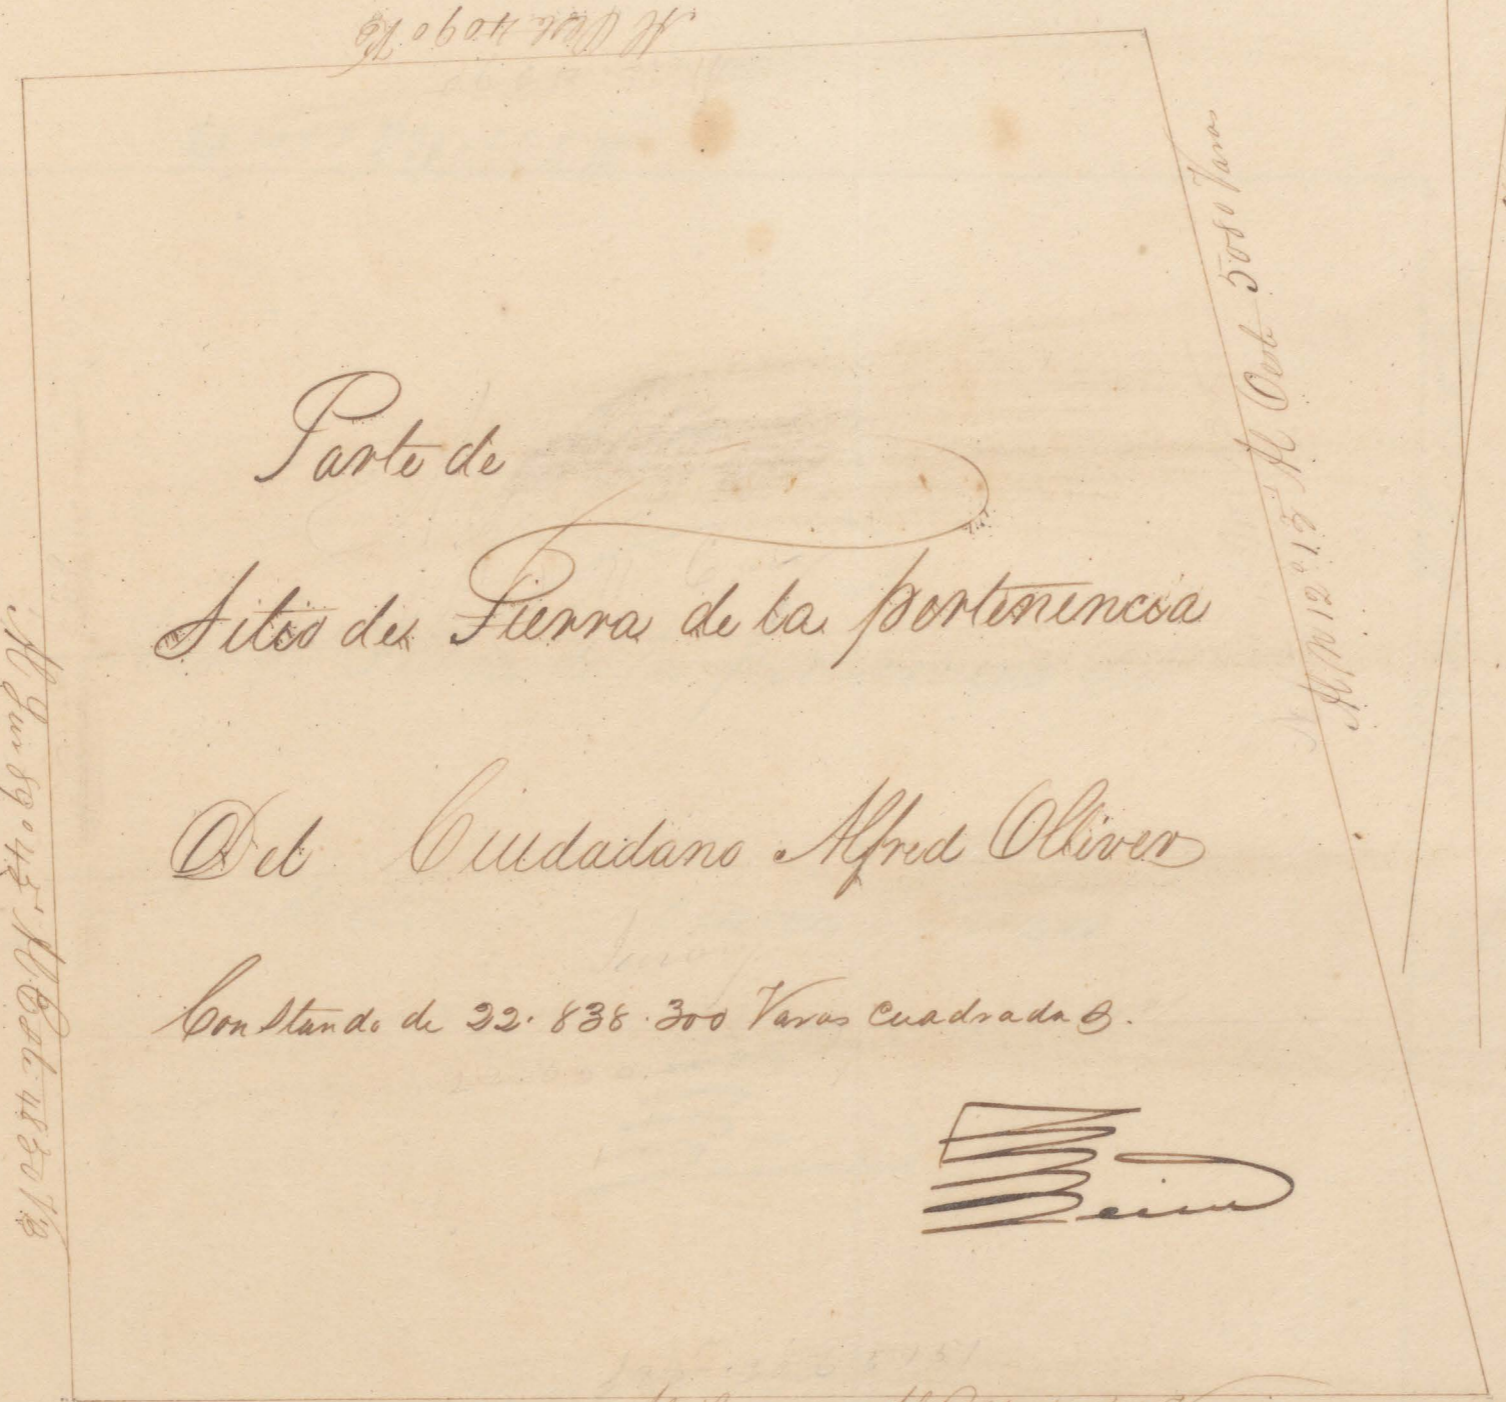 Al Oeste 4090 Vs
Al N 12° 15' Al Oeste 5080 Varas
Parte de
Sitio de Tierra de la pertenencia
Del Ciudadano Alfred Olliver
Constando de 22.838.300 Varas cuadradas.
Al Sur 89° 45' Al Este 4850 Vs